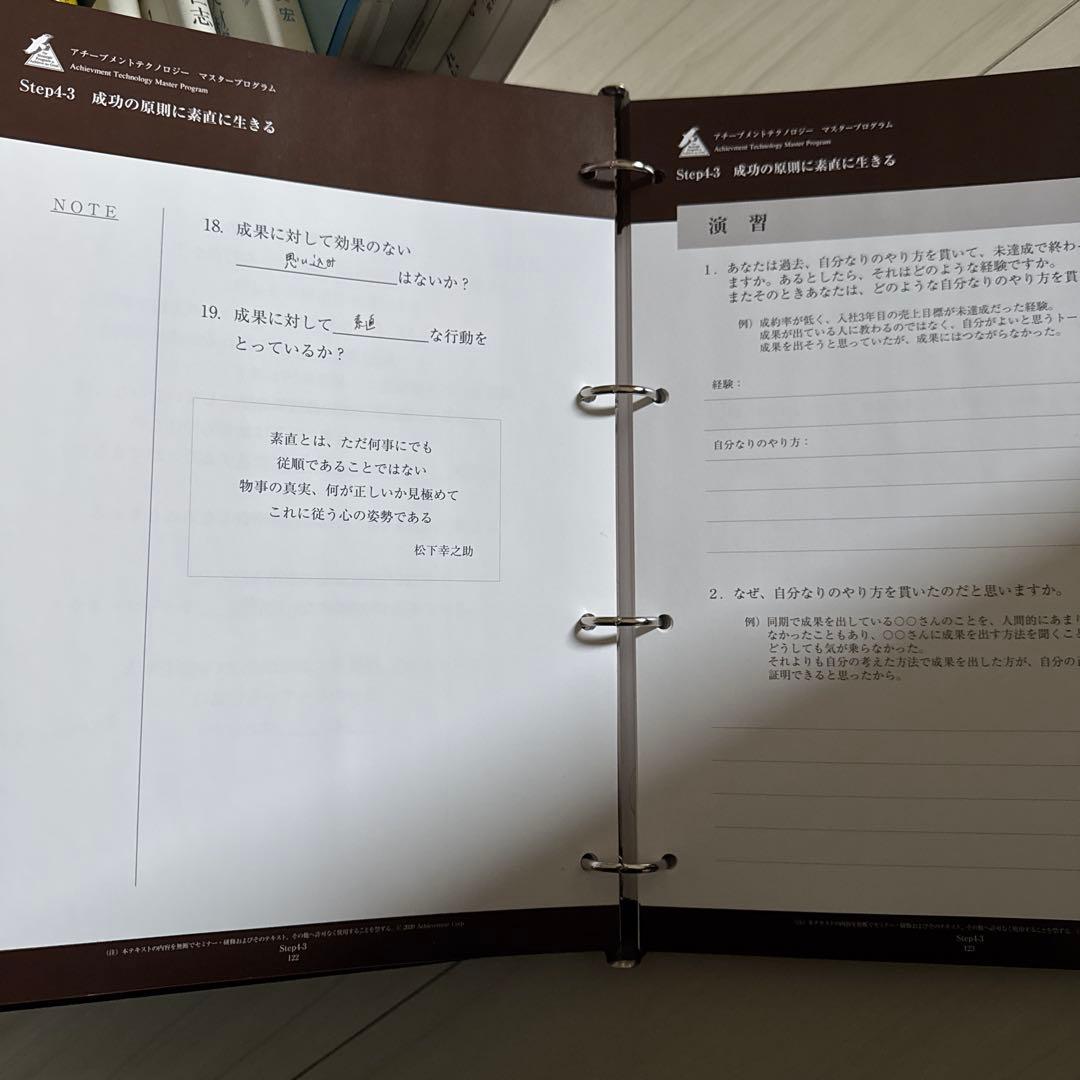 志
宏
アチーブメントテクノロジー マスタープログラム
Achievment Technology Master Program
Step4-3 成功の原則に素直に生きる
NOTE
18. 成果に対して効果のない
思い込み
はないか？
19. 成果に対して 素直 な行動を
とっているか？
素直とは、ただ何事にでも
従順であることではない
物事の真実、何が正しいか見極めて
これに従う心の姿勢である
松下幸之助
(注) 本テキストの内容を無断でセミナー・研修およびそのテキスト、その他へ許可なく使用することを禁ずる。© 2020 Achievement Corp.
Step4-3
122
アチーブメントテクノロジー マスタープログラム
Achievment Technology Master Program
Step4-3 成功の原則に素直に生きる
演 習
1. あなたは過去、自分なりのやり方を貫いて、未達成で終わっ
ますか。あるとしたら、それはどのような経験ですか。
またそのときあなたは、どのような自分なりのやり方を貫
例）成約率が低く、入社3年目の売上目標が未達成だった経験。
成果が出ている人に教わるのではなく、自分がよいと思うトー
成果を出そうと思っていたが、成果にはつながらなかった。
経験：
自分なりのやり方：
2. なぜ、自分なりのやり方を貫いたのだと思いますか。
例）同期で成果を出している〇〇さんのことを、人間的にあまり
なかったこともあり、〇〇さんに成果を出す方法を聞くこと
どうしても気が乗らなかった。
それよりも自分の考えた方法で成果を出した方が、自分の
証明できると思ったから。
(注) 本テキストの内容を無断でセミナー・研修およびそのテキスト、その他へ許可なく使用することを禁ずる。
Step4-3
123